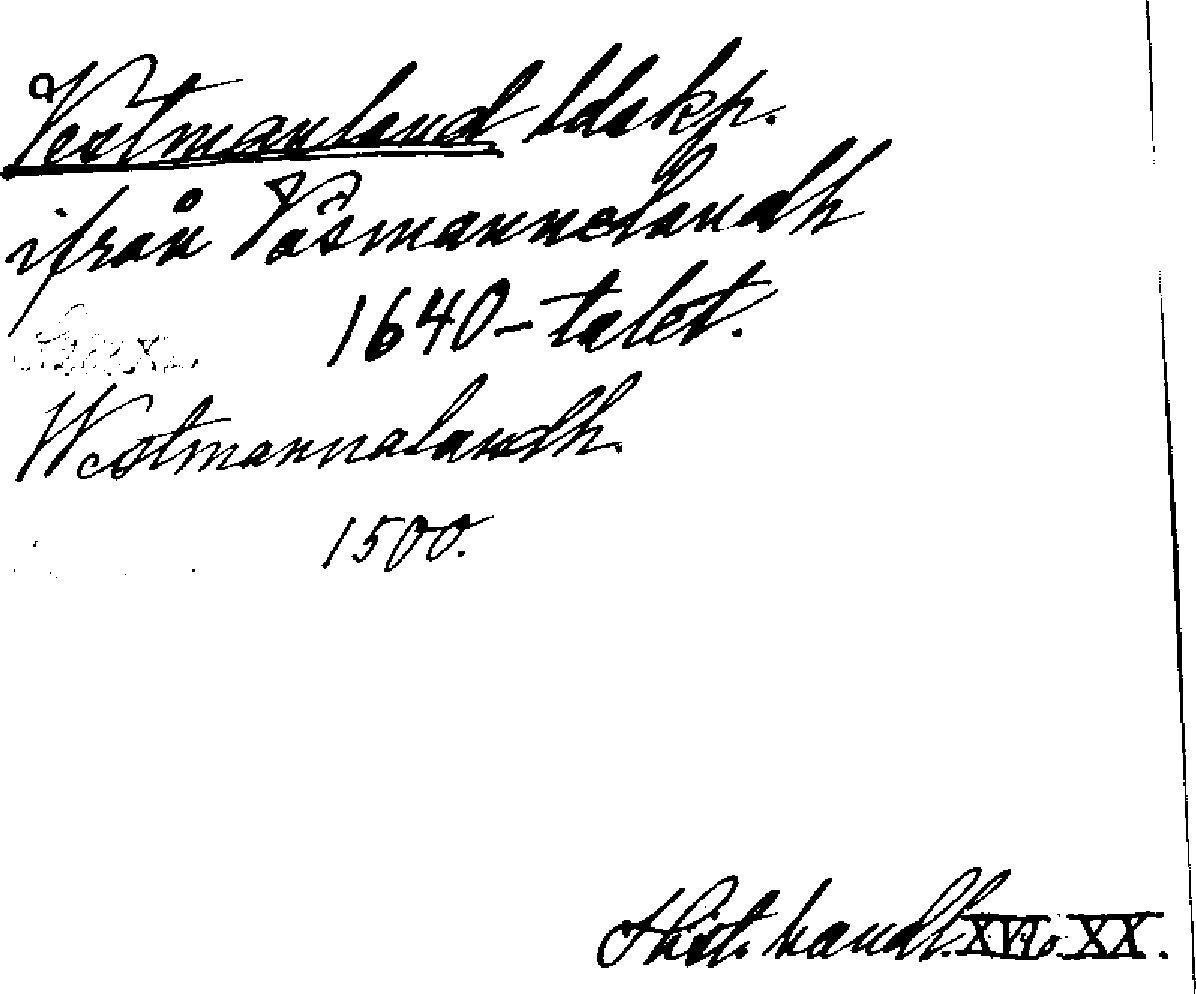 Vestmanland ldskp.
ifrån Väsmannelandh
1640-talet.
Westmannalandh.
1500.
Hist. handl. XVI o. XX.